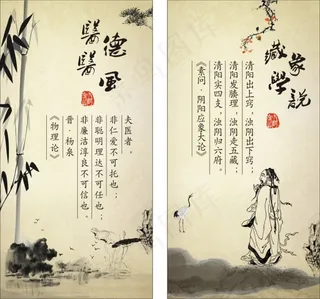 醫德
醫風
夫医者，
非仁爱不可托也；
非聪明理达不可任也；
非廉洁淳良不可信也。
晋·杨泉
《物理论》
藏象
學說
清阳出上窍，浊阴出下窍；
清阳发腠理，浊阴走五藏；
清阳实四支，浊阴归六府。
《素问·阴阳应象大论》